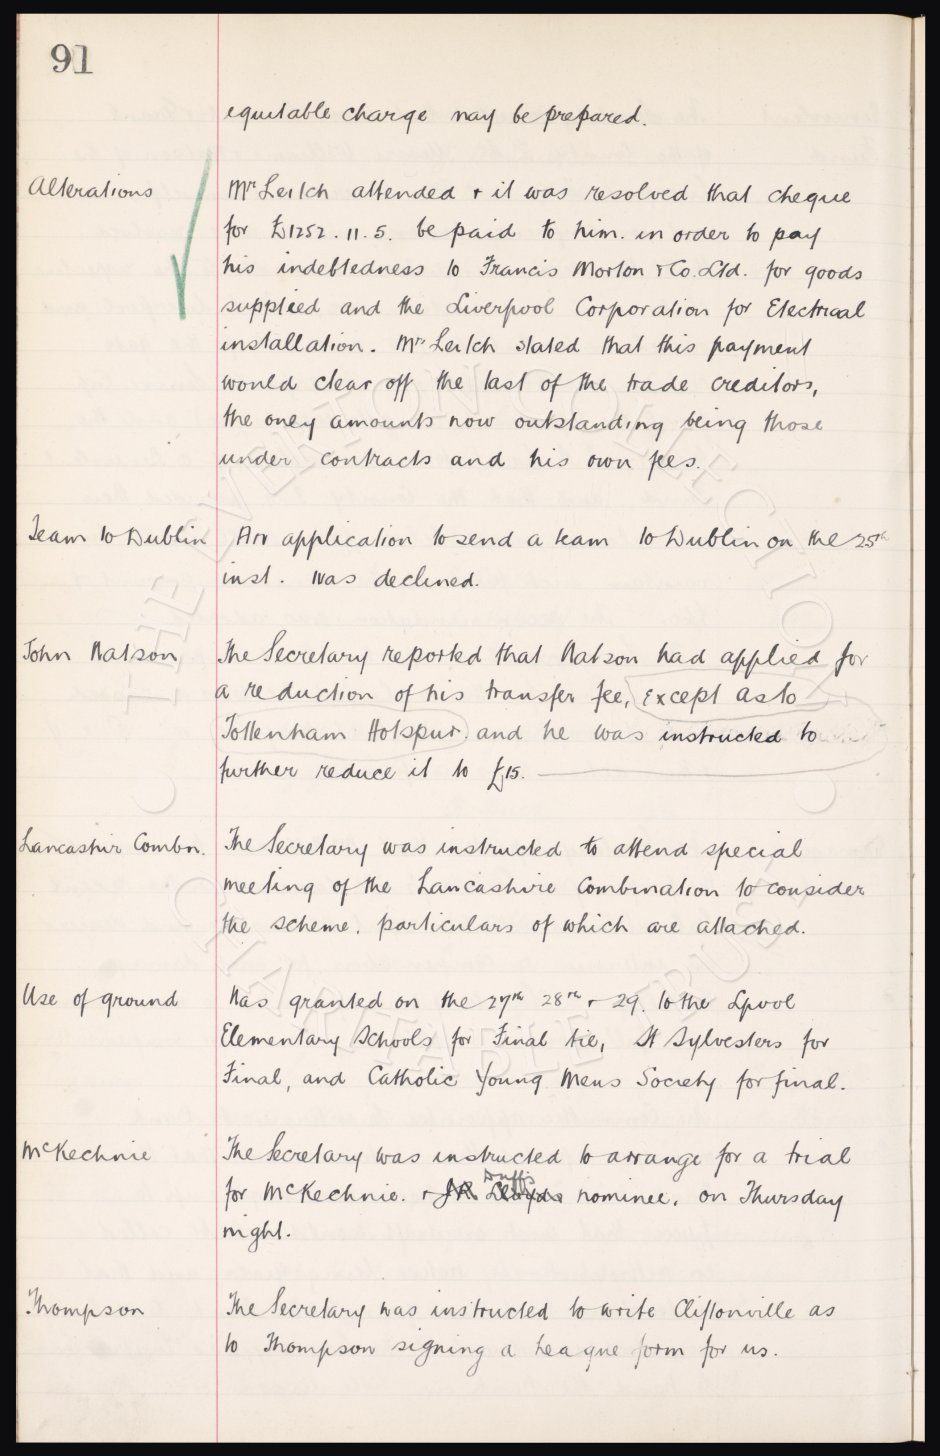 91
equitable charge may be prepared.
Alterations
Mr Leitch attended + it was resolved that cheque
for £1252.11.5. be paid to him. in order to pay
his indebtedness to Francis Morton & Co. Ltd. for goods
supplied and the Liverpool Corporation for Electrical
installation. Mr Leitch stated that this payment
would clear off the last of the trade creditors,
the only amounts now outstanding being those
under contracts and his own fees.
Team to Dublin
An application to send a team to Dublin on the 25th
inst. was declined.
John Watson
The Secretary reported that Watson had applied for
a reduction of his transfer fee, except as to
Tottenham Hotspur. and he was instructed to
further reduce it to £15.
Lancashir Combn.
The Secretary was instructed to attend special
meeting of the Lancashire Combination to consider
the scheme. particulars of which are attached.
Use of ground
Was granted on the 27th 28th + 29. to the Lpool
Elementary Schools for Final tie, St Sylvesters for
Final, and Catholic Young Mens Society for final.
McKechnie
The Secretary was instructed to arrange for a trial
Duffs
for McKechnie. + JR Lloyds nominee. on Thursday
night.
Thompson
The Secretary was instructed to write Cliftonville as
to Thompson signing a League form for us.
THE EVERTON COLLECTION
CHARITABLE TRUST